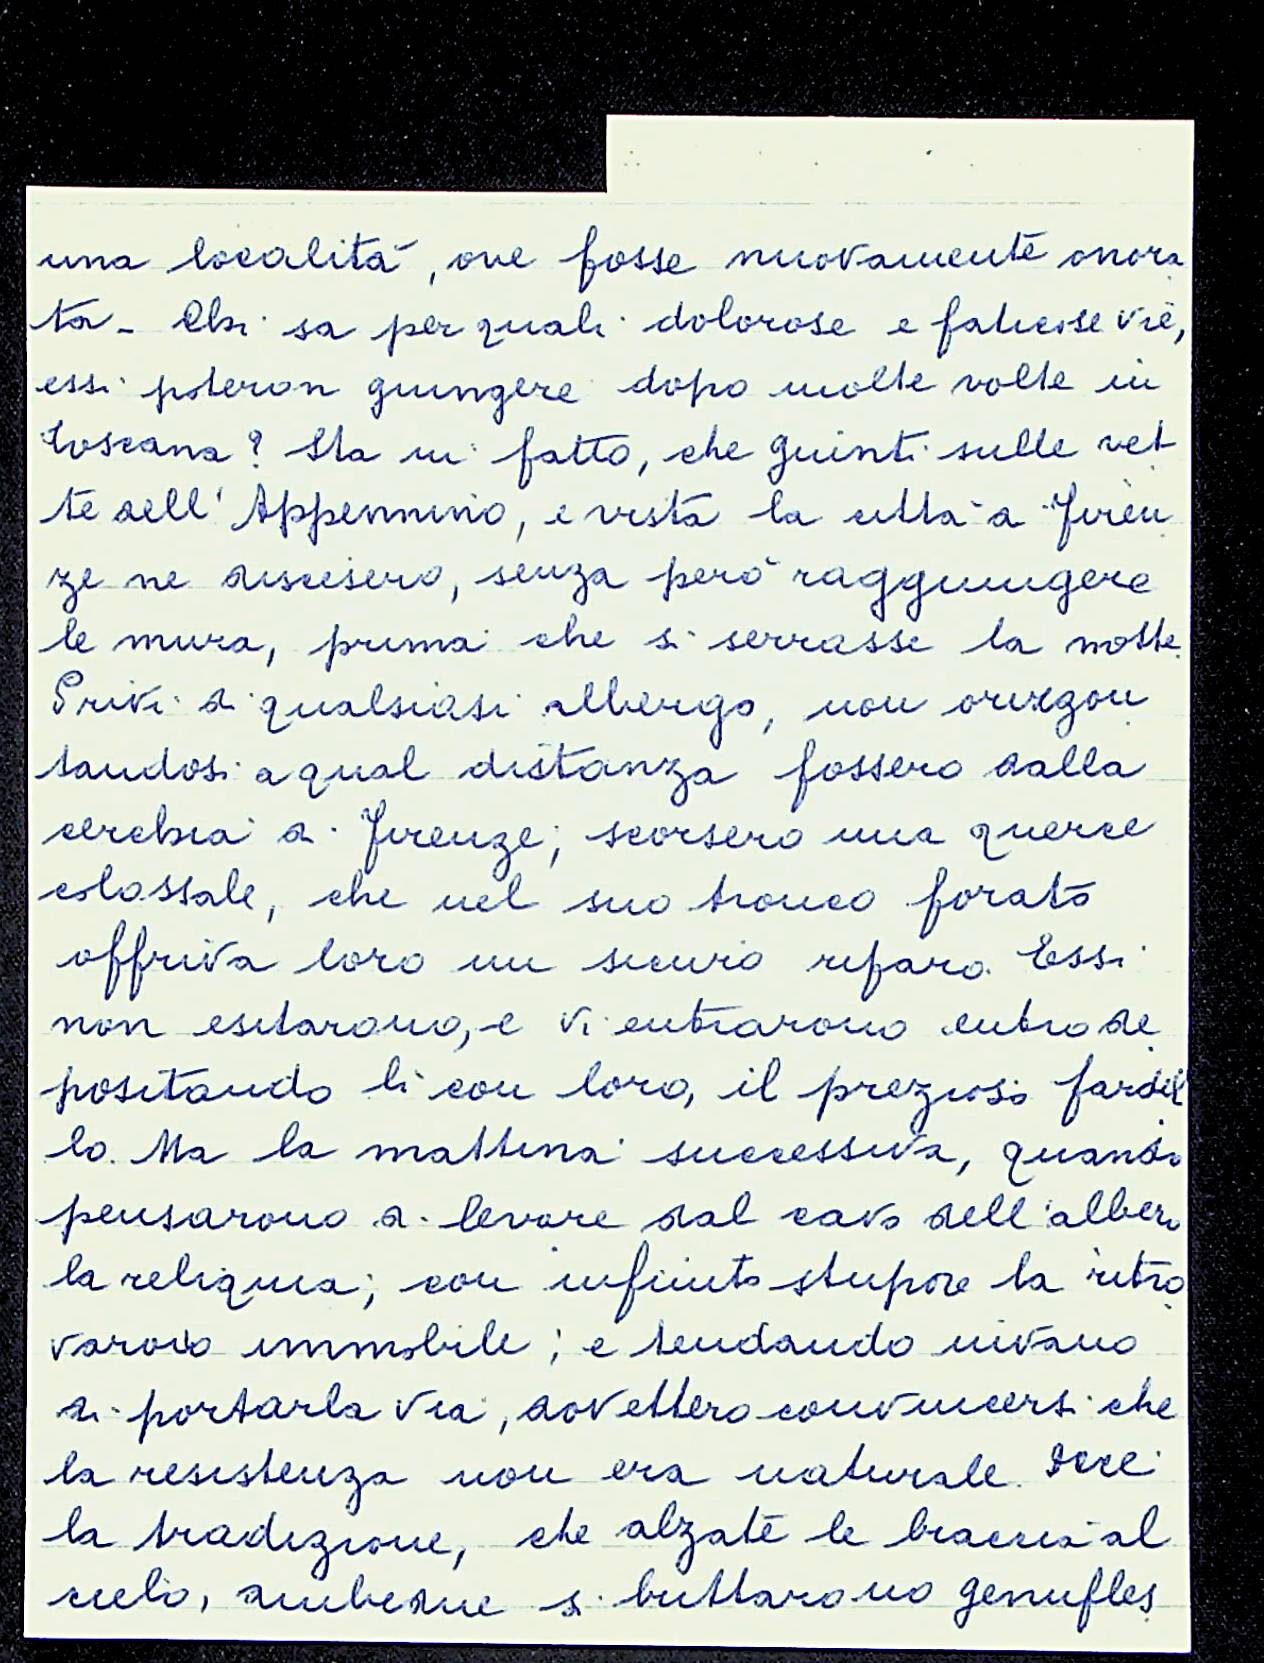 una località, ove fosse nuovamente onora
ta - Chi sa per quali dolorose e faticose vie,
essi poteron giungere dopo molte volte in
Toscana? Sta in fatto, che giunti sulle vet
te dell'Appennino, e vista la città a Firen
ze ne discesero, senza però raggiungere
le mura, prima che si serrasse la notte.
Privi di qualsiasi albergo, non orizzon
tandosi a qual distanza fossero dalla
cerchia di Firenze; scorsero una querce
colossale, che nel suo tronco forato
offriva loro un sicuro riparo. Essi
non esitarono, e vi entrarono entro de
positando lì con loro, il prezioso fardel
lo. Ma la mattina successiva, quando
pensarono di levare dal cavo dell'albero
la reliquia; con infinito stupore la ritro
varono immobile; e tendando nivano
di portarla via, dovettero convincersi che
la resistenza non era naturale. Dice
la tradizione, che alzate le braccia al
cielo, ambedue si buttarono genufles